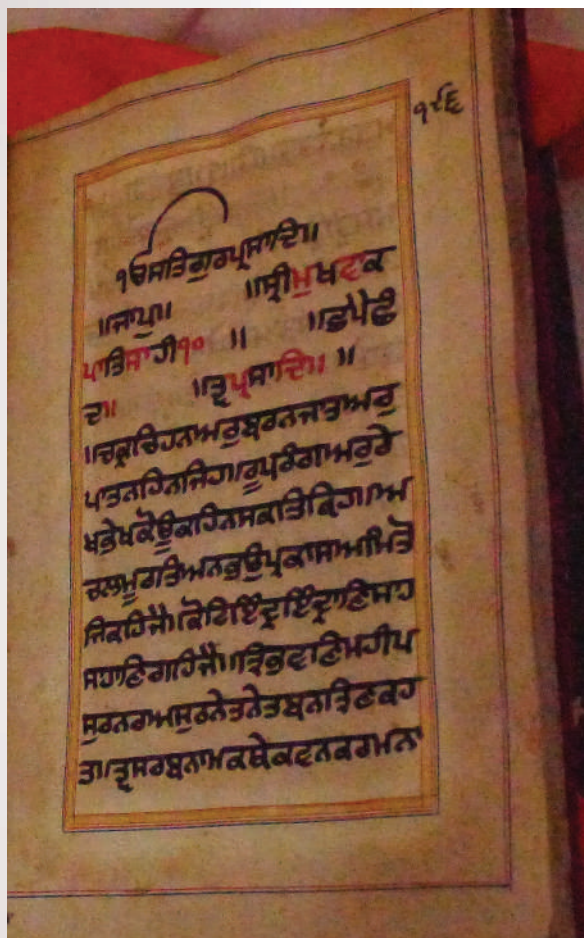 ੧੯੬
ੴਸਤਿਗੁਰਪ੍ਰਸਾਦਿ॥
॥ਜਾਪੁ॥ ॥ਸ੍ਰੀਮੁਖਵਾਕ
ਪਾਤਿਸਾਹੀ੧੦ ॥ ॥ਛਪੈਛੰ
ਦ॥ ॥ਤ੍ਵਪ੍ਰਸਾਦਿ॥ ॥
॥ਚਕ੍ਰਚਿਹਨਅਰੁਬਰਨਜਾਤਅਰੁ
ਪਾਤਨਹਿਨਜਿਹ॥ਰੂਪਰੰਗਅਰੁਰੇ
ਖਭੇਖਕੋਊਕਹਿਨਸਕਤਿਕਿਹ॥ਅ
ਚਲਮੂਰਤਿਅਨਭਉਪ੍ਰਕਾਸਅਮਿਤੋ
ਜਿਕਹਿਜੈ॥ਕੋਟਿਇੰਦ੍ਰਇੰਦ੍ਰਾਣਿਸਾਹ
ਸਾਹਾਣਿਗਹਿਜੈ॥ਤ੍ਰਿਭਵਾਣਿਮਹੀਪ
ਸੁਰਨਰਅਸੁਰਨੇਤਨੇਤਬਨਤ੍ਰਿਣਕਹ
ਤ॥ਤ੍ਵਸਰਬਨਾਮਕਥੇਕਵਨਕਰਮਨਾ